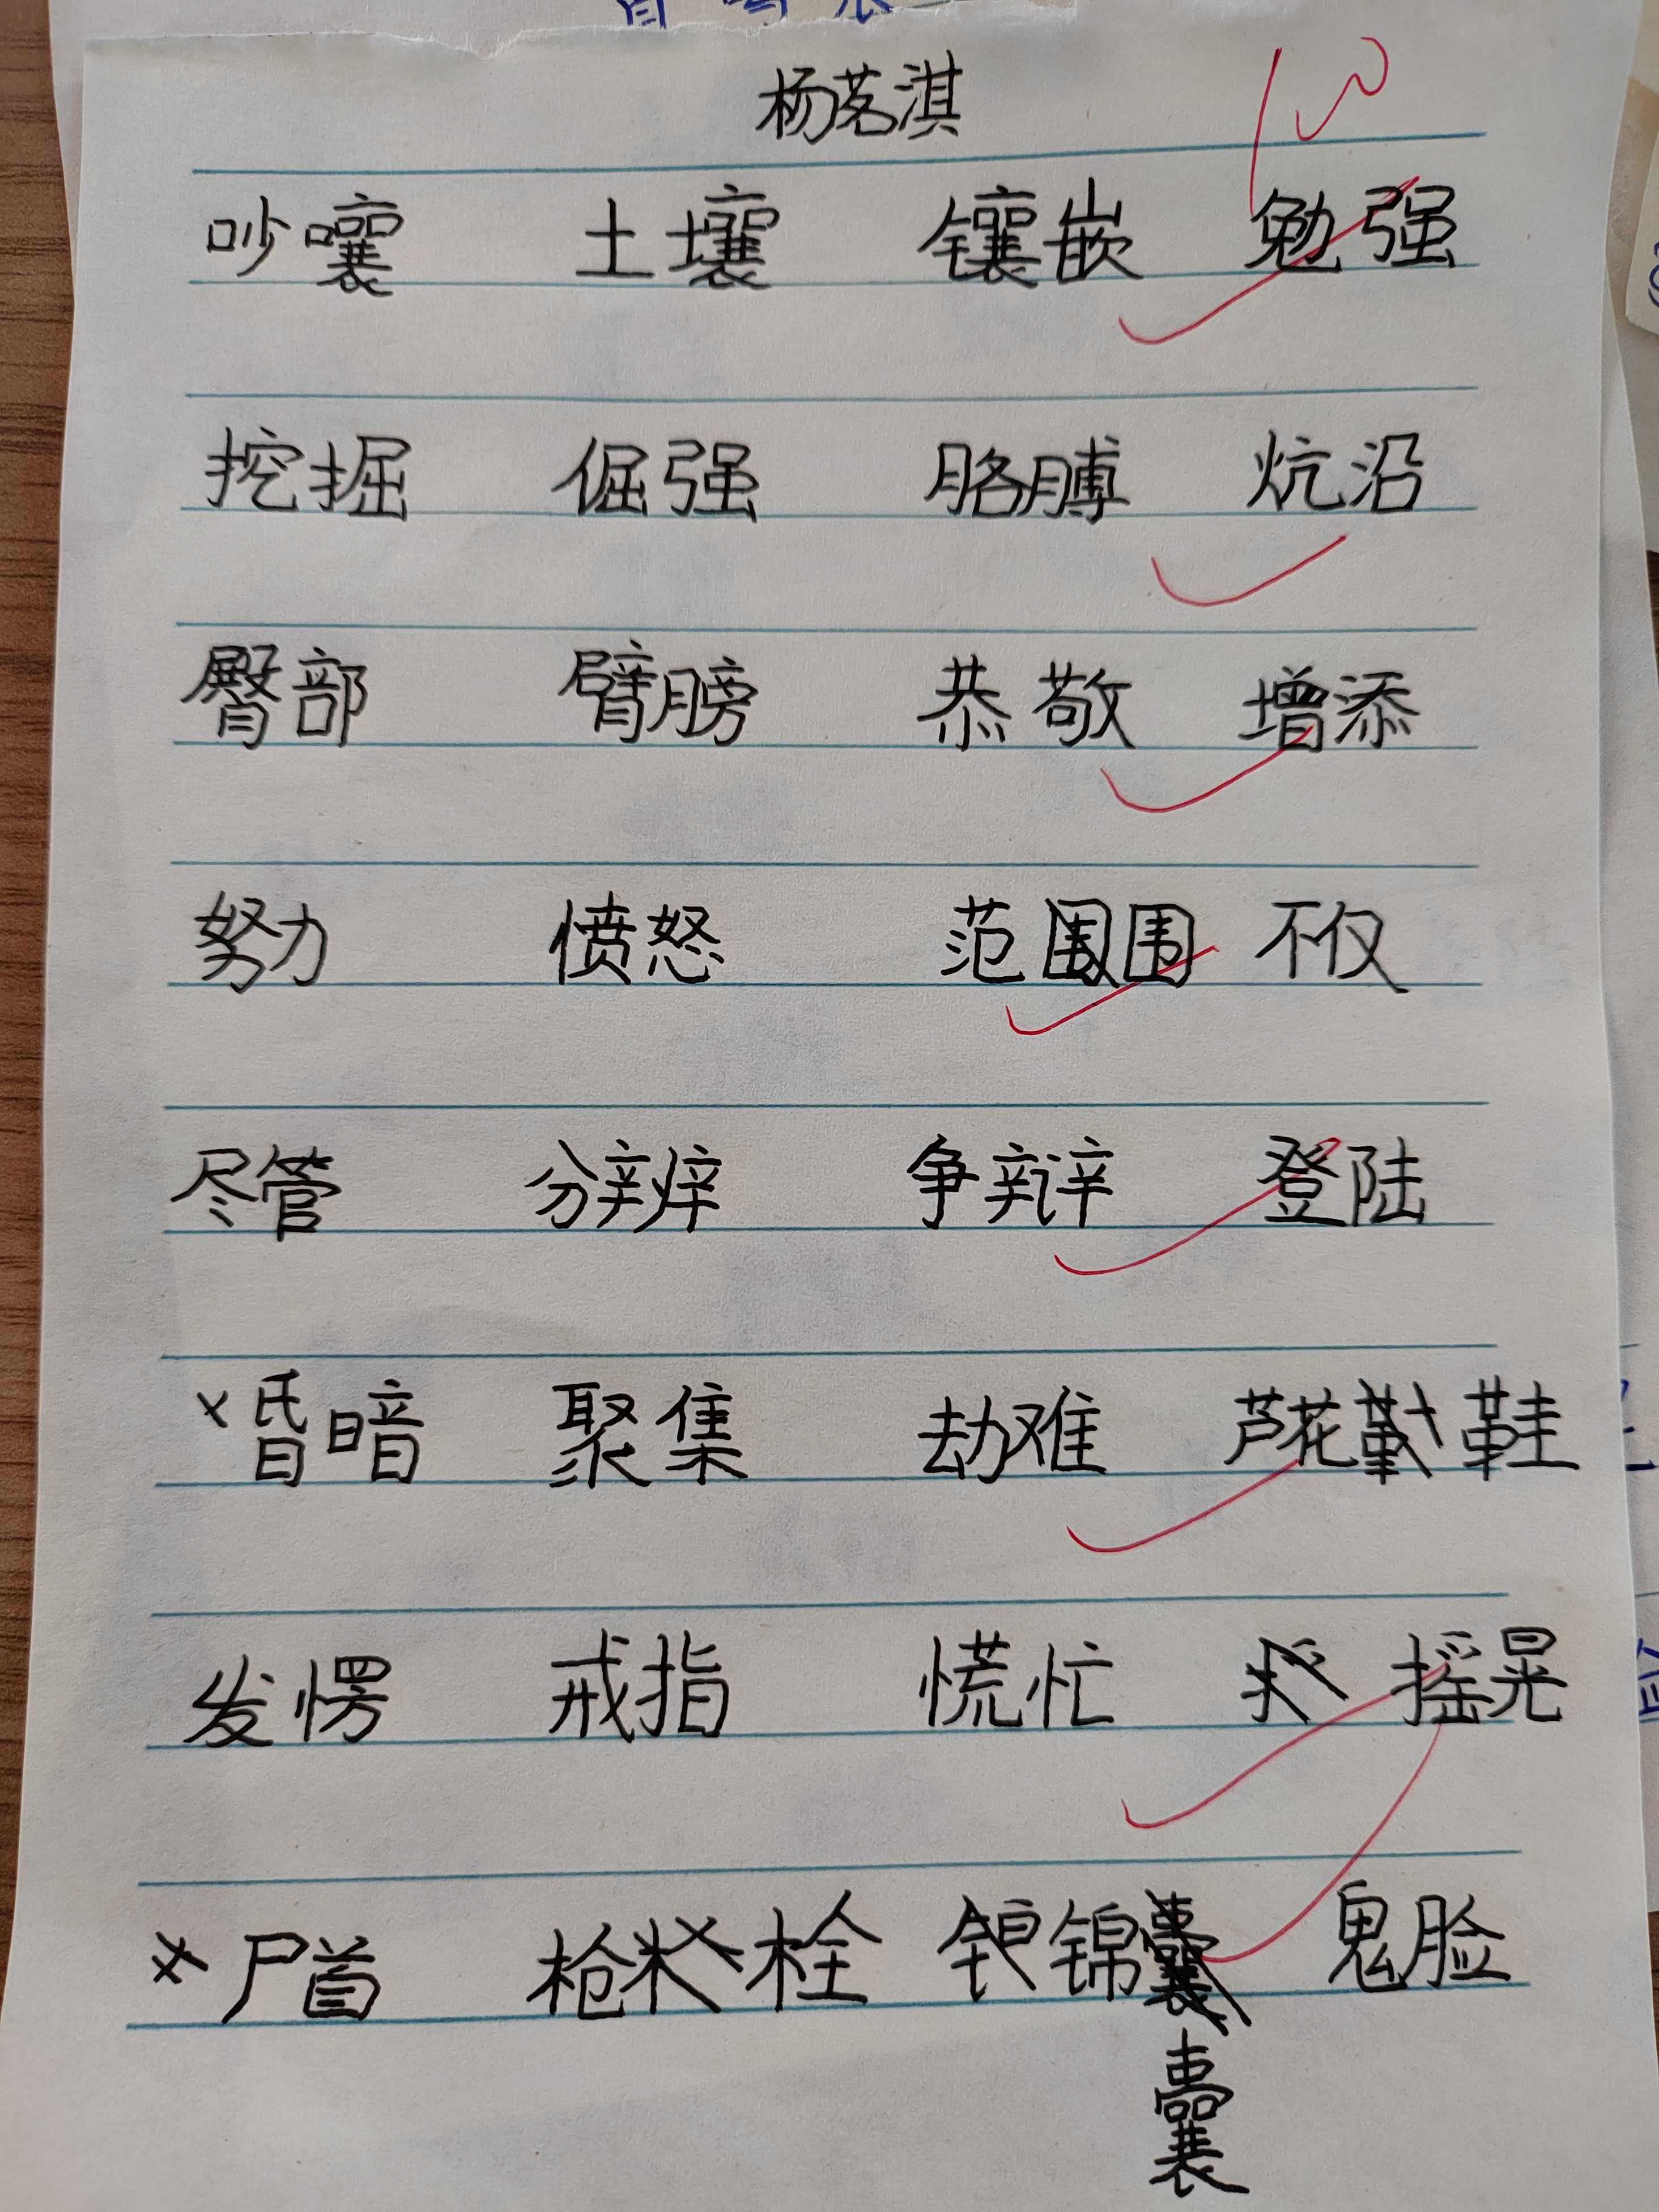 杨茗淇 100
吵嚷 土壤 镶嵌 勉强
挖掘 倔强 胳膊 炕沿
臀部 臂膀 恭敬 增添
努力 愤怒 范围 不仅
尽管 分辨 争辩 登陆
×昏暗 聚集 劫难 芦花鞋
发愣 戒指 慌忙 摇晃
×尸首 枪栓 锦囊 鬼脸